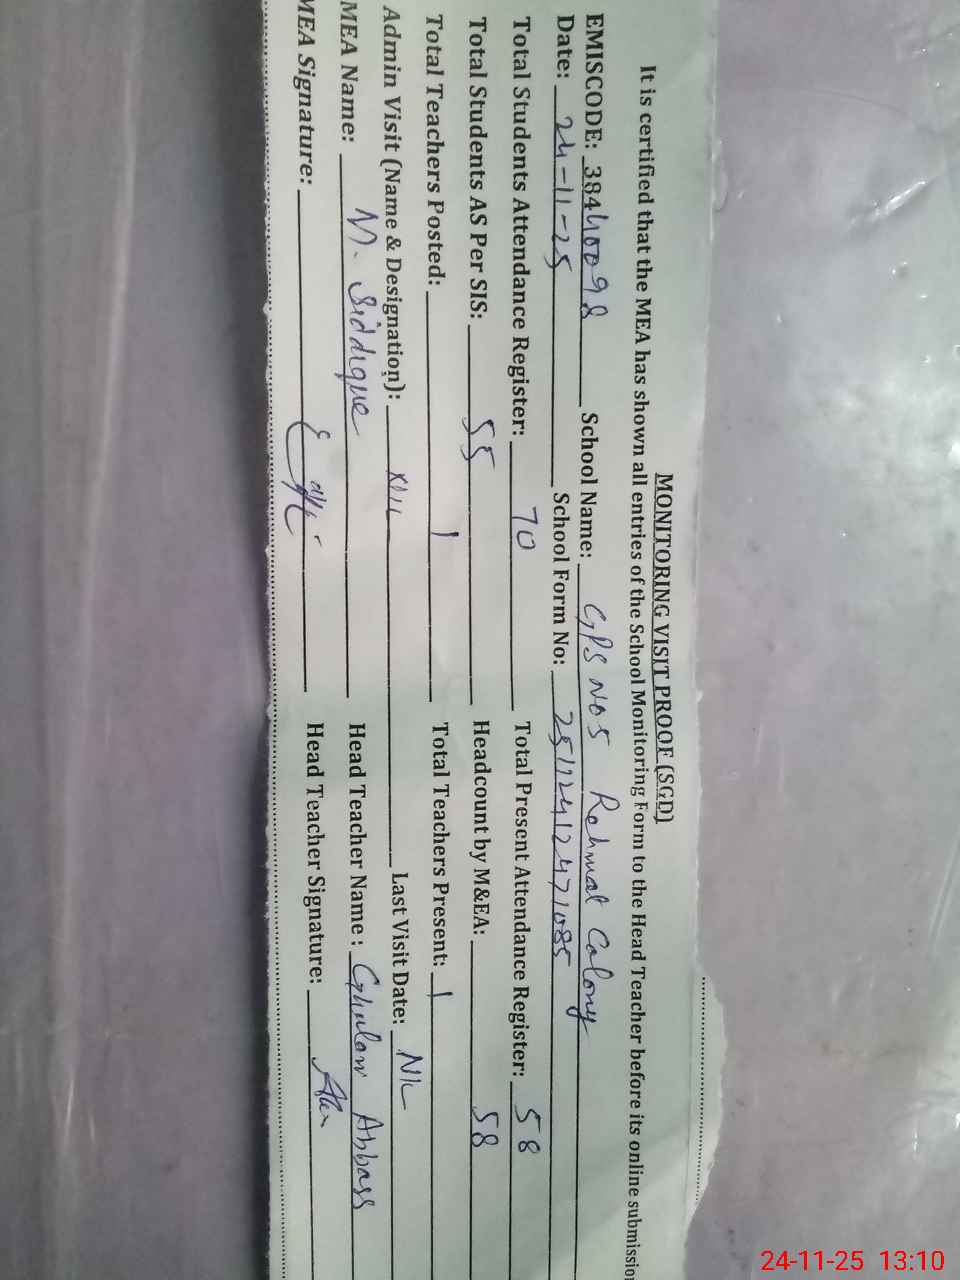 MONITORING VISIT PROOF (SGD)
It is certified that the MEA has shown all entries of the School Monitoring Form to the Head Teacher before its online submission
EMISCODE: 38440098 School Name: GPS NO5 Rehmat Colony
Date: 24-11-25 School Form No: 25112412471085
Total Students Attendance Register: 70 Total Present Attendance Register: 58
Total Students AS Per SIS: 55 Headcount by M&EA: 58
Total Teachers Posted: 1 Total Teachers Present: 1
Admin Visit (Name & Designation): Last Visit Date: NIL
MEA Name: M. Siddique Head Teacher Name : Ghulam Abbass
MEA Signature: Head Teacher Signature:
24-11-25 13:10